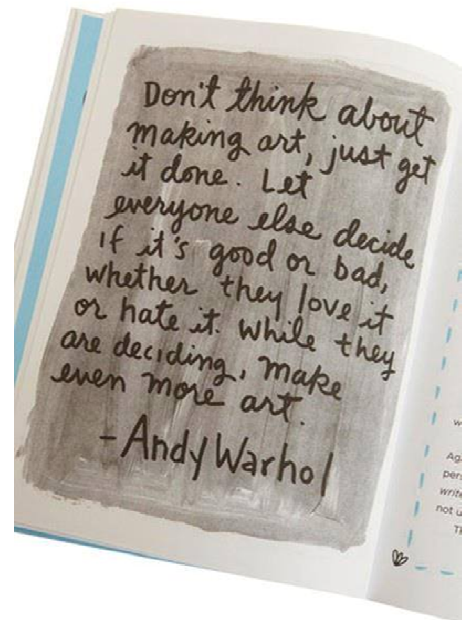 Don't think about
making art, just get
it done. Let
everyone else decide
if it's good or bad,
whether they love it
or hate it. While they
are deciding, make
even more art.
- Andy Warhol
Aga
pers
write
not u